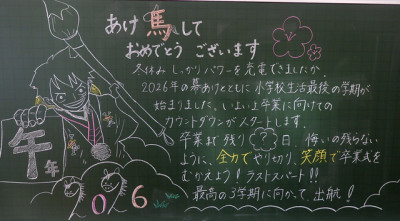 あけ馬して
おめでとうございます
冬休みしっかりパワーを充電できましたか
2026年の幕あけとともに小学校生活最後の学期が
始まりました。いよいよ卒業に向けての
カウントダウンがスタートします。
卒業まで残り?日、悔いの残らない
ように、全力でやり切り、笑顔で卒業式を
むかえよう！ラストスパート!!
最高の3学期に向かって出航！
午年
2026